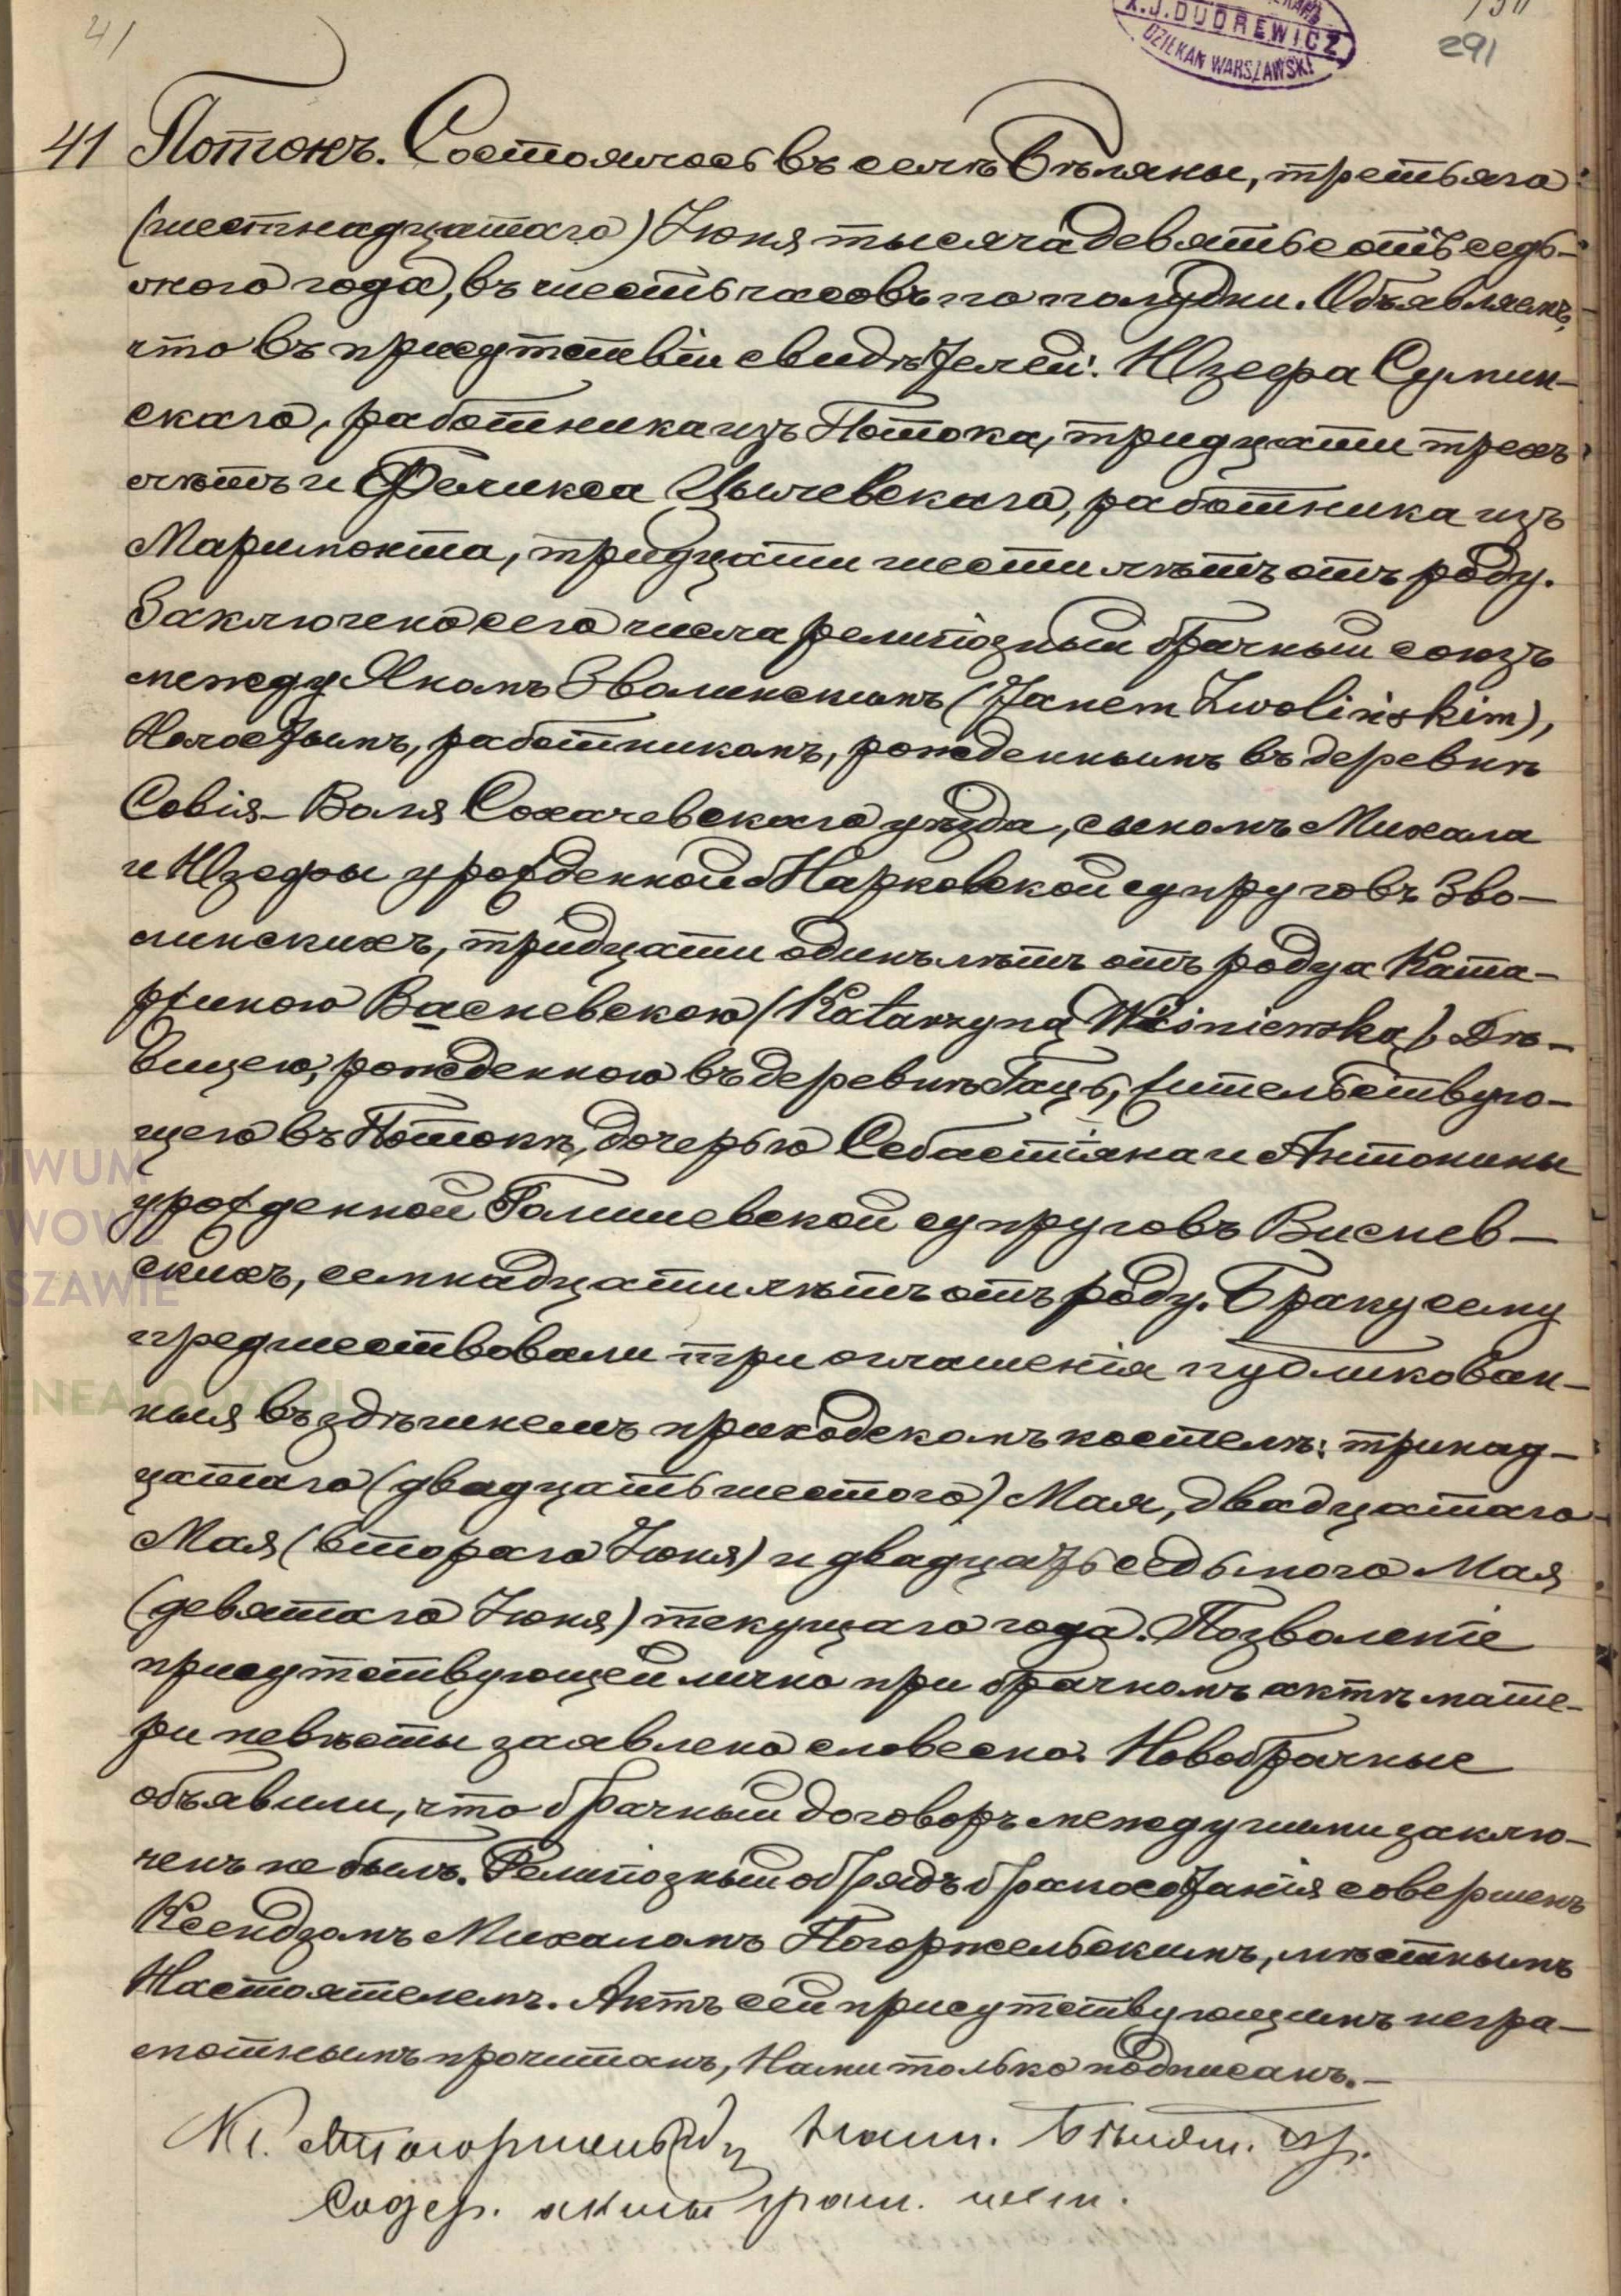 41
X.J.DUDREWICZ
DZIEKAN WARSZAWSKI
291
41 Потокъ. Состоялось въ селѣ Бѣляны, третьяго
(шестнадцатаго) Іюня тысяча девятьсотъ седь-
мого года, въ шесть часовъ по полудни. Объявляемъ,
что въ присутствіи свидѣтелей: Юзефа Сулин-
скаго, работника изъ Потока, тридцати трехъ
лѣтъ и Феликса Цылевскаго, работника изъ
Маримонта, тридцати шести лѣтъ отъ роду.
Заключено сего числа религіозный брачный союзъ
между Яномъ Зволинскимъ (Janem Zwolińskim),
Холостымъ, работникомъ, рожденнымъ въ деревнѣ
Совія-Воля Сохачевскаго уѣзда, сыномъ Михала
и Юзефы урожденной Нарковской супруговъ Зво-
линскихъ, тридцати одинъ лѣтъ отъ роду а Ката-
ржиною Васневскою (Katarzyną Waśniewską), Дѣ-
вицею, рожденною въ деревнѣ Гаць, жительствую-
щею въ Потокѣ, дочерью Себастіяна и Антонины
урожденной Голишевской супруговъ Виснев-
скихъ, семнадцати лѣтъ отъ роду. Браку сему
предшествовали три оглашенія публикован-
ныя въ здѣшнемъ приходскомъ костелѣ: тринад-
цатаго (двадцать шестого) Мая, двадцатаго
Мая (второго Іюня) и двадцать седьмого Мая
(девятаго Іюня) текущаго года. Позволеніе
присутствующей лично при брачномъ актѣ мате-
ри невѣсты заявлено словесно. Новобрачные
объявили, что брачный договоръ между ними заклю-
ченъ не былъ. Религіозный обрядъ бракосочетанія совершенъ
Ксендзомъ Михаломъ Погоржельскимъ, мѣстнымъ
Настоятелемъ. Актъ сей присутствующимъ негра-
мотнымъ прочитанъ, Нами только подписанъ.-
Кс. М Погоржельскій Наст. Бѣлян. пр.
Содер. акты граж. сост.